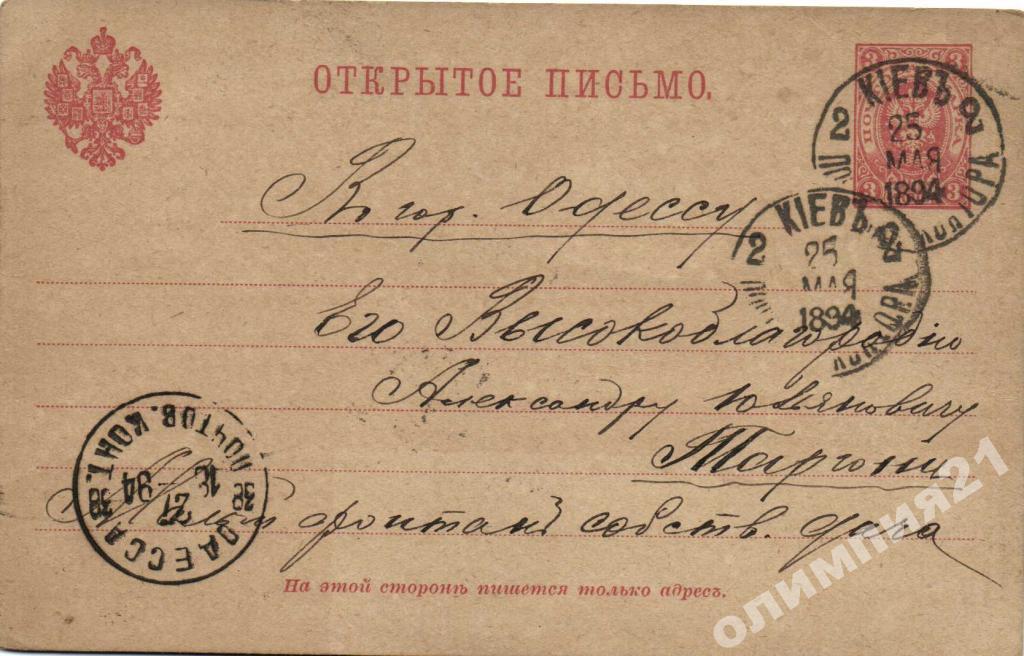 ОТКРЫТОЕ ПИСЬМО.
3 3
3 3
КІЕВЪ
2 2
25
МАЯ
1894
КОНТОРА
КІЕВЪ
2 2
25
МАЯ
1894
КОНТОРА
Въ гор. Одессу
Его Высокоблагородію
Александру Юльяновичу
фонтанъ собств. дача
ОДЕССА
ПОЧТОВ. КОНТ.
94
На этой сторонѣ пишется только адресъ.
олимпия21